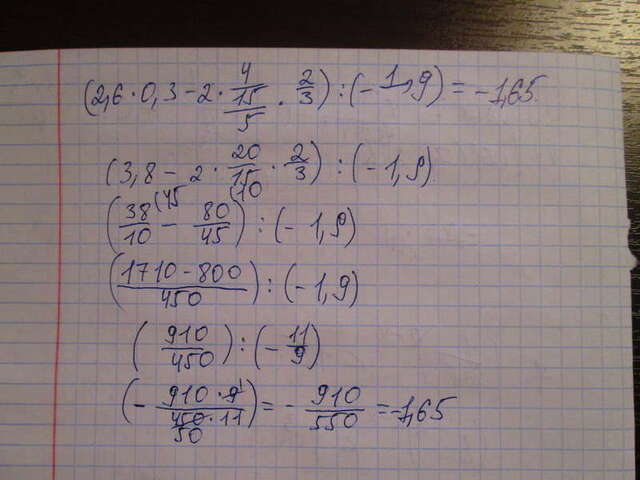 (2,6 · 0,3 - 2 · 4/(15/5) · 2/3) : (- 1,9) = -1,65
(3,8 - 2 · 20/15 · 2/3) : (- 1,9)
(38/10 (45 - 80/45 (10) : (- 1,9)
((1710 - 800)/450) : (- 1,9)
(910/450) : (- 11/9)
(- (910 · 9 1)/(450 · 11) 50) = - 910/550 = -1,65